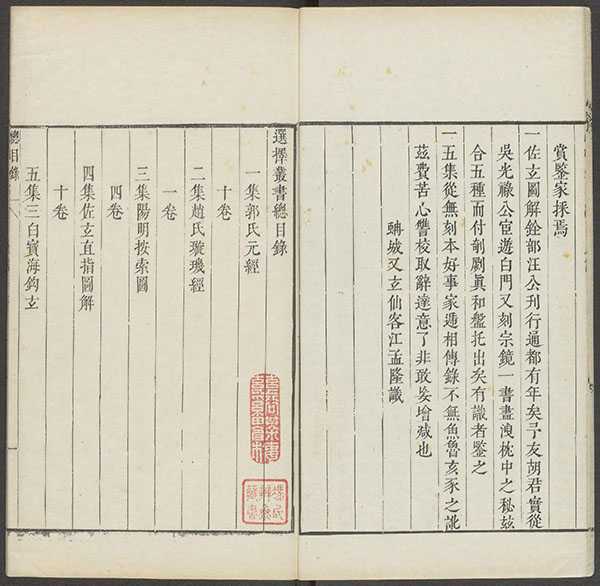 賞鑒家採焉
一佐玄圖解銓部汪公刋行通都有年矣予友胡君實從
吳光祿公宦遊白門又刻宗鏡一書盡洩枕中之秘玆
合五種而付剞劂眞和盤托出矣有識者鑒之
一五集從無刻本好事家遞相傳錄不無魚魯亥豕之訛
茲費苦心讐校取辭達意了非敢妄增减也
又玄仙客江孟隆識
選擇叢書總目錄
一集郭氏元經
十卷
二集趙氏璇璣經
一卷
三集陽明按索圖
四卷
四集佐玄直指圖解
十卷
五集三白寶海鈎玄
總目錄